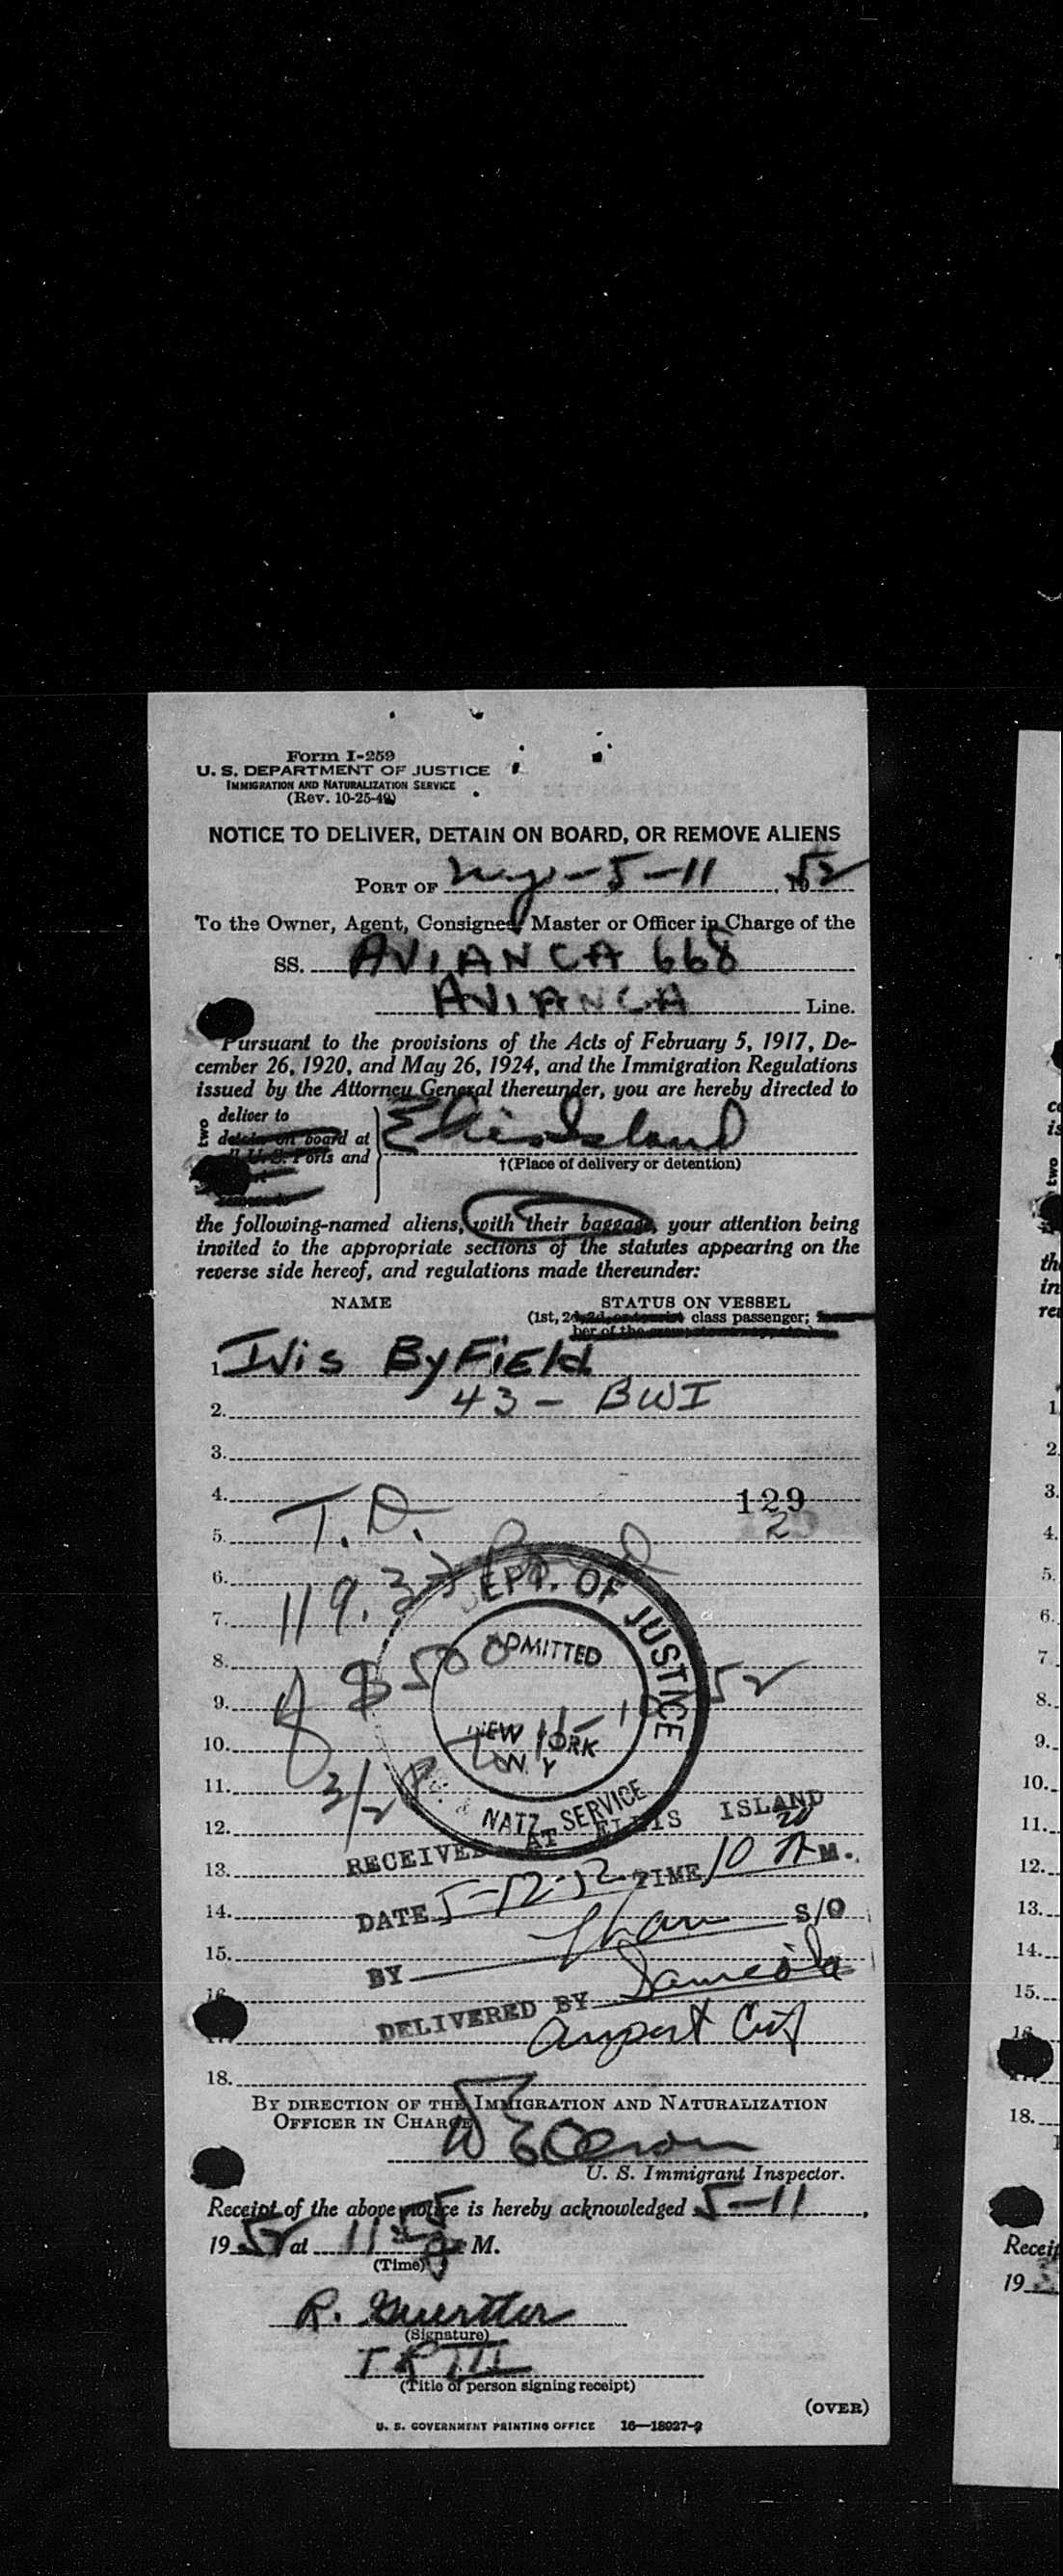 Form I-259
U. S. DEPARTMENT OF JUSTICE
IMMIGRATION AND NATURALIZATION SERVICE
(Rev. 10-25-49)
NOTICE TO DELIVER, DETAIN ON BOARD, OR REMOVE ALIENS
PORT OF 5-11, 1952
To the Owner, Agent, Consignee, Master or Officer in Charge of the
SS. AVIANCA 668
AVIANCA Line.
Pursuant to the provisions of the Acts of February 5, 1917, De-
cember 26, 1920, and May 26, 1924, and the Immigration Regulations
issued by the Attorney General thereunder, you are hereby directed to
two
deliver to
detain on board at
U.S. Ports and
remove to
Ellis Island
†(Place of delivery or detention)
the following-named aliens, with their baggage, your attention being
invited to the appropriate sections of the statutes appearing on the
reverse side hereof, and regulations made thereunder:
NAME STATUS ON VESSEL
(1st, 2d, 3d, or tourist class passenger;
ber of the crew;
1. Ivis ByField
2. 43 - BWI
3.
4. 129
T.D. 2
5.
6.
119.33
7.
8. $500
9. 52
10.
11.
3/2
12.
DEPT. OF JUSTICE
ADMITTED
NEW YORK
N. Y
NATZ. SERVICE
RECEIVED AT ELLIS ISLAND
13.
DATE 5-12-52 TIME 10 A M.
14.
S/O
15.
BY
16.
DELIVERED BY
airport
18.
BY DIRECTION OF THE IMMIGRATION AND NATURALIZATION
OFFICER IN CHARGE
U. S. Immigrant Inspector.
Receipt of the above notice is hereby acknowledged 5-11,
1952 at 11 M.
(Time)
R. Guertler
(Signature)
T R III
(Title of person signing receipt)
(OVER)
U. S. GOVERNMENT PRINTING OFFICE 16—18927-2
is
two
th
in
1
2
3.
4.
5.
6.
7.
8.
9.
10.
11.
12.
13.
14.
15.
16
18.
Receip
19